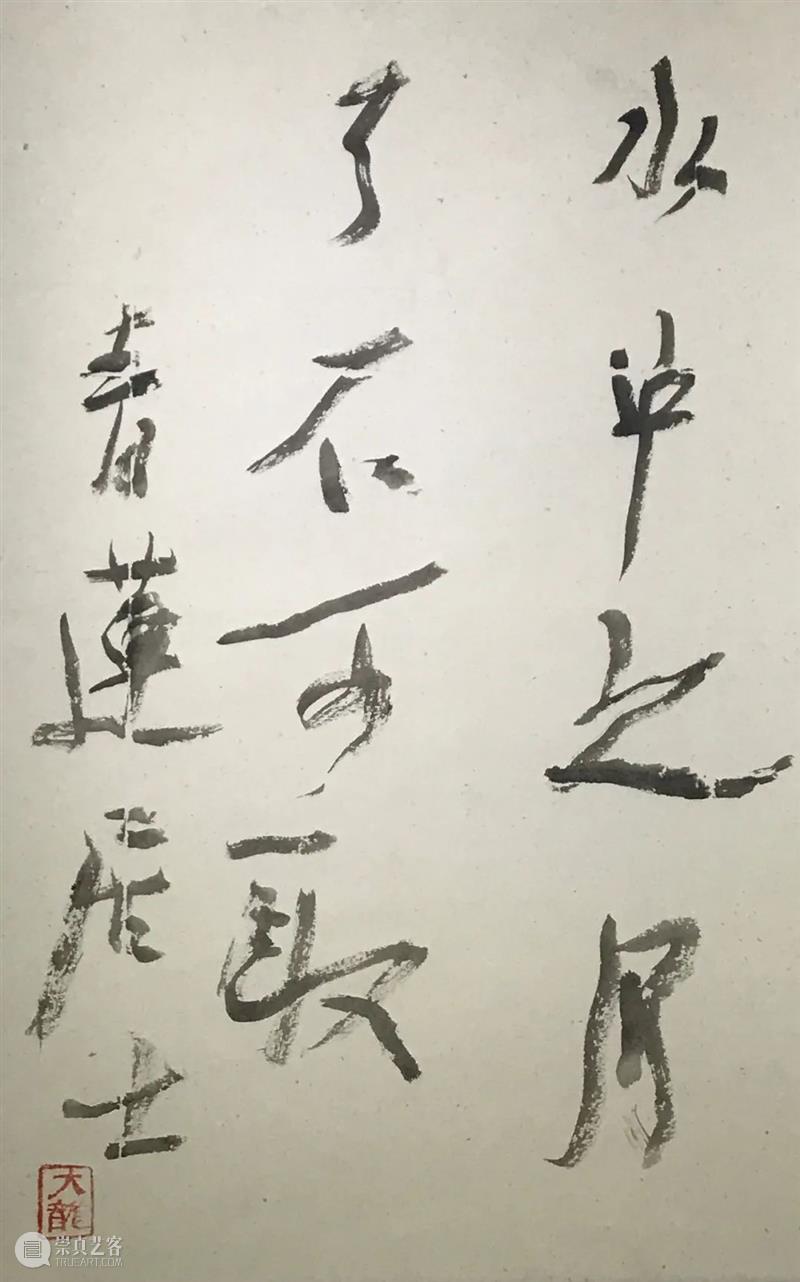 水中之月
了不可取
青蓮居士
天龍
崇真艺客
TRUEART.COM